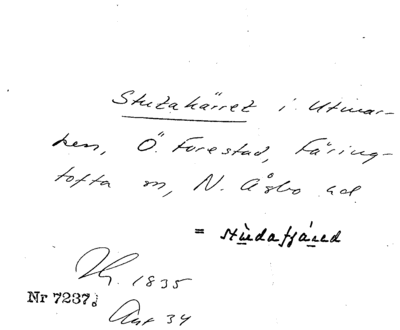 Stutakärret i Utmar-
ken, Ö. Forestad, Färing-
tofta sn, N. Åsbo hd
= stùdafjáred
1835
Nr 7237.
34